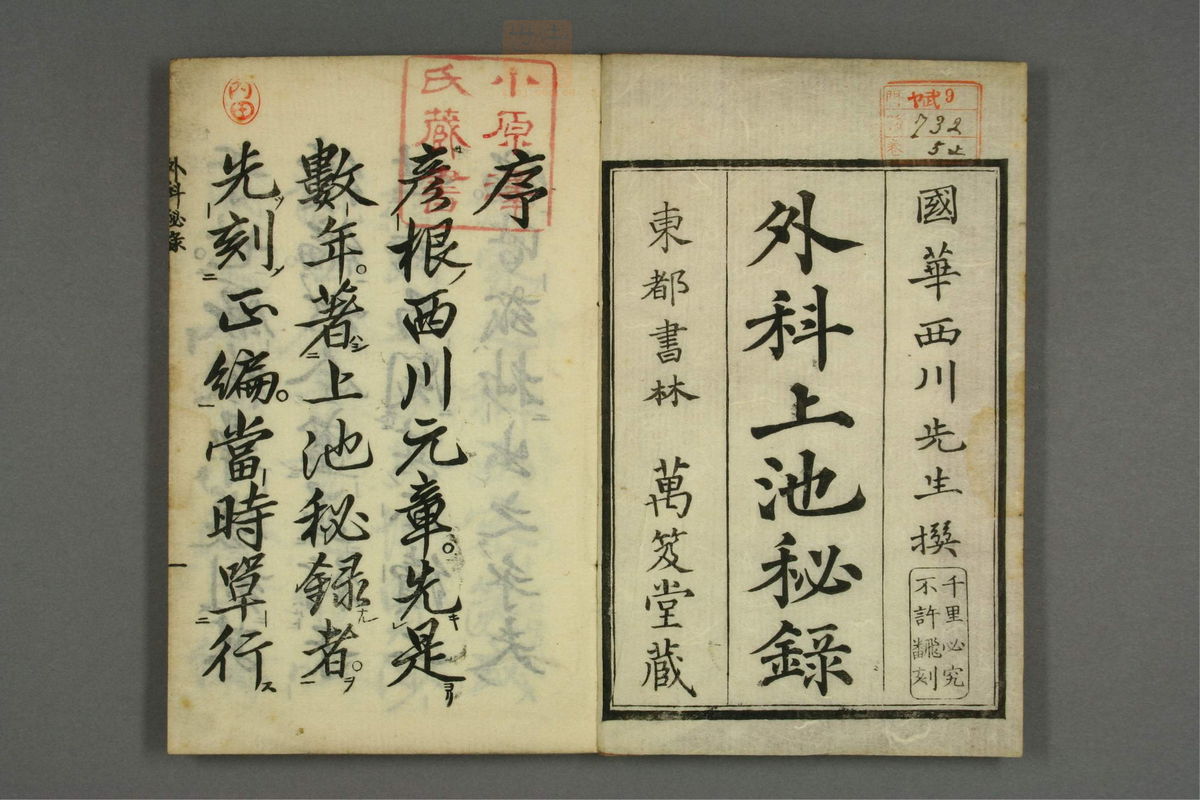 國華西川先生撰
千里必究
不許飜刻
外科上池秘錄
東都書林 萬笈堂蔵
9
732
5
小原
氏蔵書
内田
序
彦根西川元章。先是
數年。著上池秘録者。
先刻正編。當時單行
外科秘录
一